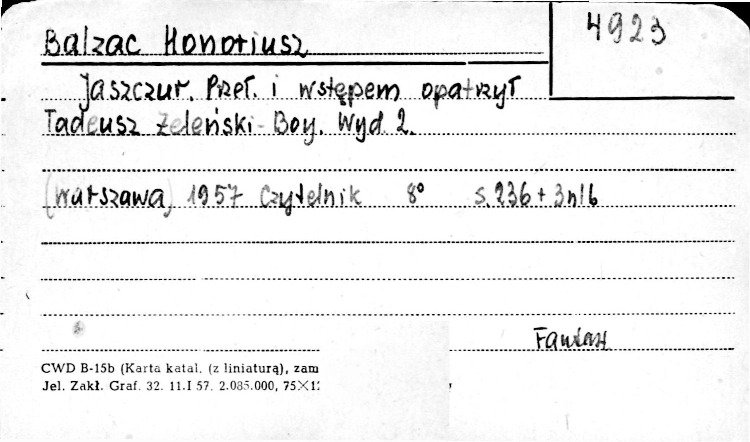 4923
Balzac Honoriusz
Jaszczur. Przeł. i wstępem opatrzył
Tadeusz Żeleński-Boy. Wyd 2.
(Warszawa) 1957 Czytelnik 8° s. 236 + 3nlb
CWD B-15b (Karta katal. (z liniaturą), zam
Jel. Zakł. Graf. 32. 11.I 57. 2.085.000, 75×1